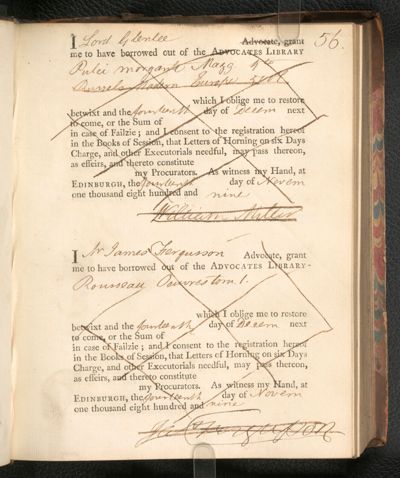 56.
I Lord Glenlee Advocate, grant
me to have borrowed out of the ADVOCATES LIBRARY
Pulci morgante Magg 4to
Russels Modern Europe 2 vol
which I oblige me to restore
betwixt and the fourteenth day of Decem next
to come, or the Sum of
in case of Failzie; and I consent to the registration hereof
in the Books of Session, that Letters of Horning on six Days
Charge, and other Executorials needful, may pass thereon,
as effeirs, and thereto constitute
my Procurators. As witness my Hand, at
EDINBURGH, the fourteenth day of Novem
one thousand eight hundred and nine
William Miller
I Mr James Fergusson Advocate, grant
me to have borrowed out of the ADVOCATES LIBRARY-
Rousseau Oeuvres tom 1.
which I oblige me to restore
betwixt and the fourteenth day of Decem next
to come, or the Sum of
in case of Failzie; and I consent to the registration hereof
in the Books of Session, that Letters of Horning on six Days
Charge, and other Executorials needful, may pass thereon,
as effeirs, and thereto constitute
my Procurators. As witness my Hand, at
EDINBURGH, the fourteenth day of Novem
one thousand eight hundred and nine
Fergusson